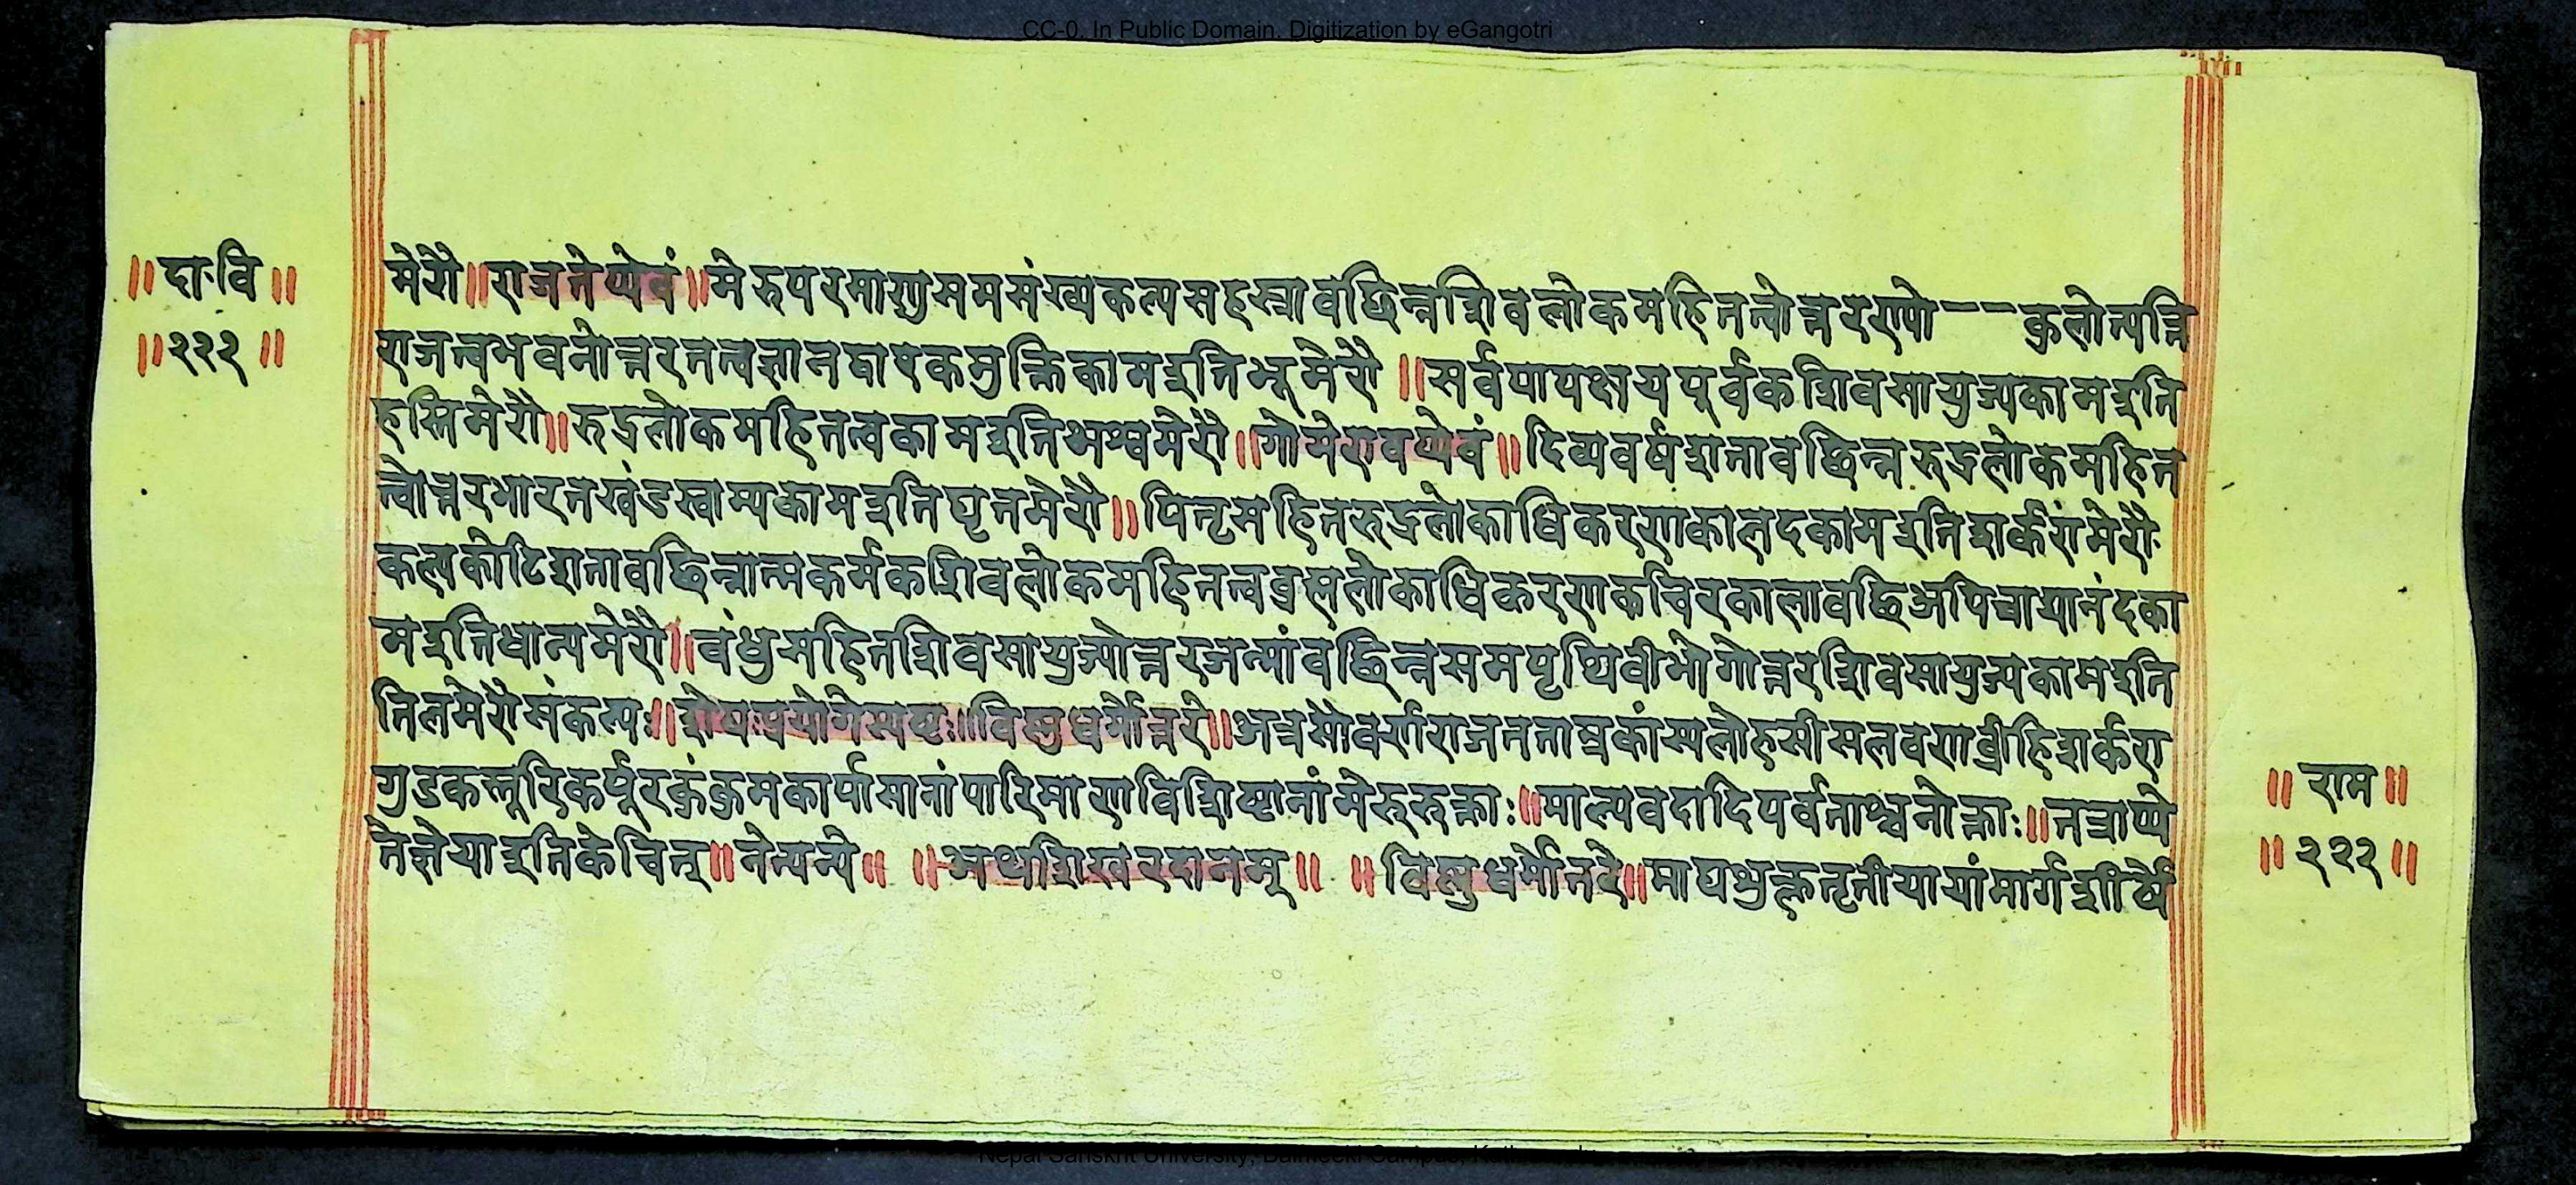 CC-0. In Public Domain. Digitization by eGangotri
॥ दा॰ वि ॥
॥ २२२ ॥
मेरौ ॥ राजतेप्येवं ॥ मेरुपरमाणुसमसंख्यकल्पसहस्रावछिन्नशिवलोकमहितत्वोत्तररापो－－कुलोत्पत्ति
राजत्वभवनोत्तरतत्वज्ञानद्वारकमुक्तिकामइतिभूमेरौ ॥ सर्वपापक्षयपूर्वकशिवसायुज्यकामइति
हस्तिमेरौ ॥ रुद्रलोकमहितत्वकामइतिअश्वमेरौ ॥ गोमेरावप्येवं ॥ दिव्यवर्षशतावछिन्नरुद्रलोकमहित
त्वोत्तरभारतखंडस्वाम्यकामइतिघृतमेरौ ॥ पितृमहितरुद्रलोकाधिकरणकालदकामइतिशर्करामेरौ
कल्पकोटिशतावछिन्नात्मकर्मकशिवलोकमहितत्वब्रह्मलोकाधिकरणकचिरकालावछिअपिच्चायानंदका
मइतिधान्यमेरौ ॥ बंधुसहितशिवसायुज्योत्तरजन्मांवछिन्नसमपृथिवीभोगोत्तरशिवसायुज्यकामइति
तिलमेरौसंकल्पः ॥ शेषप्रयोगेस्पष्टः ॥ विष्णुधर्मोत्तरे ॥ अत्रसौवर्णराजतताम्रकांस्यलोहसीसलवणव्रीहिशर्करा
गुडकस्तूरिकर्पूरकुंकुमकार्पासानांपारिमाणविशिष्टानांमेरुरुक्ताः ॥ माल्यवदादिपर्वताश्चनोक्ताः ॥ तत्राप्ये
तेज्ञेयाइतिकेचित् ॥ नेत्यन्ये ॥ ॥ अथशिखरदानम् ॥ ॥ विष्णुधर्मोत्तरे ॥ माघशुक्लतृतीयायांमार्गशीर्षे
॥ राम ॥
॥ २२२ ॥
Nepal Sanskrit University, Balmeeki Campus,